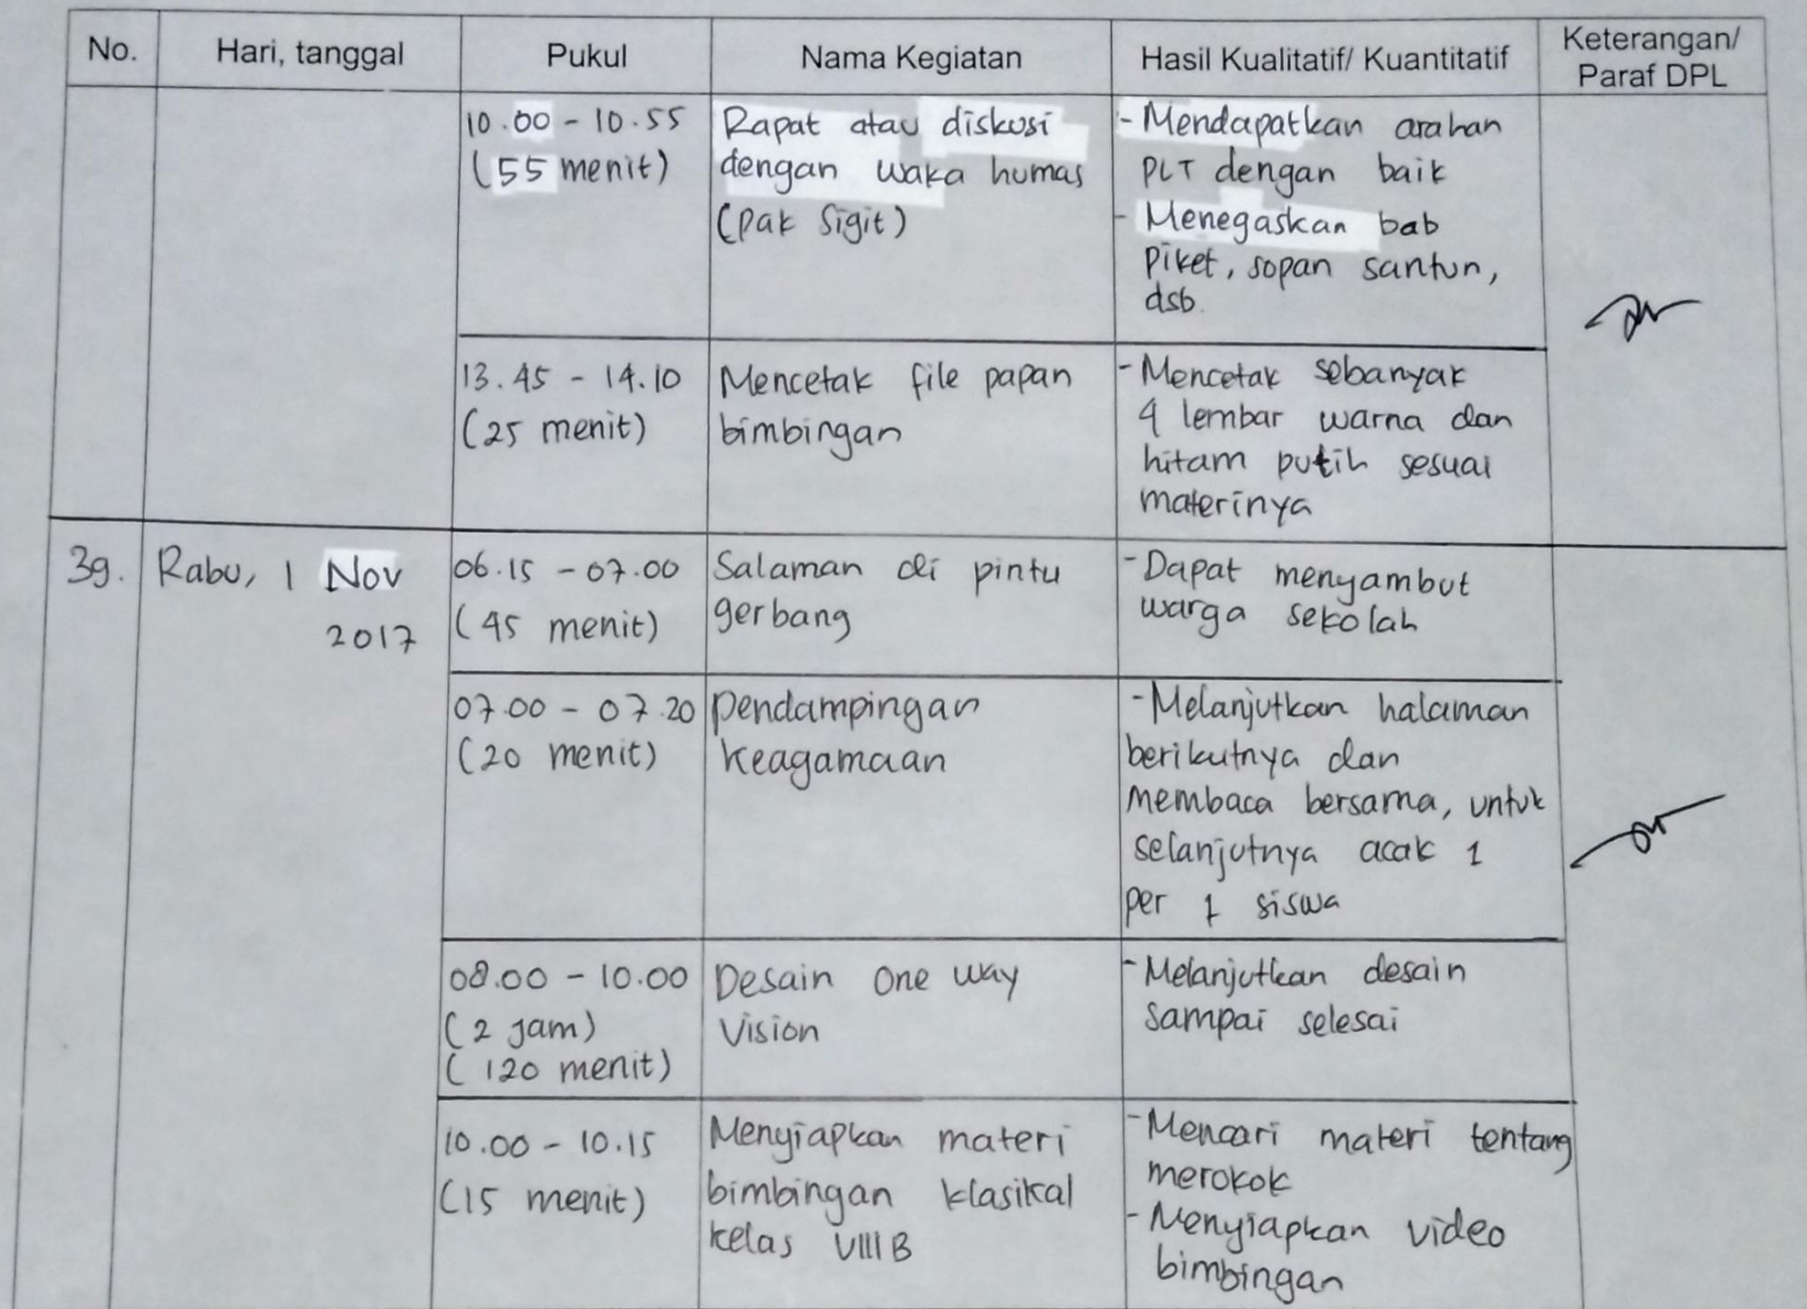 No. Hari, tanggal Pukul Nama Kegiatan Hasil Kualitatif/ Kuantitatif Keterangan/
Paraf DPL
10.00 - 10.55
(55 menit)
Rapat atau diskusi
dengan waka humas
(Pak Sigit)
- Mendapatkan arahan
PLT dengan baik
- Menegaskan bab
piket, sopan santun,
dsb.
13.45 - 14.10
(25 menit)
Mencetak file papan
bimbingan
- Mencetak sebanyak
4 lembar warna dan
hitam putih sesuai
materinya
39. Rabu, 1 Nov
2017
06.15 - 07.00
(45 menit)
Salaman di pintu
gerbang
- Dapat menyambut
warga sekolah
07.00 - 07.20
(20 menit)
Pendampingan
keagamaan
- Melanjutkan halaman
berikutnya dan
membaca bersama, untuk
selanjutnya acak 1
per 1 siswa
08.00 - 10.00
(2 jam)
(120 menit)
Desain One Way
Vision
- Melanjutkan desain
sampai selesai
10.00 - 10.15
(15 menit)
Menyiapkan materi
bimbingan klasikal
kelas VIII B
- Mencari materi tentang
merokok
- Menyiapkan video
bimbingan